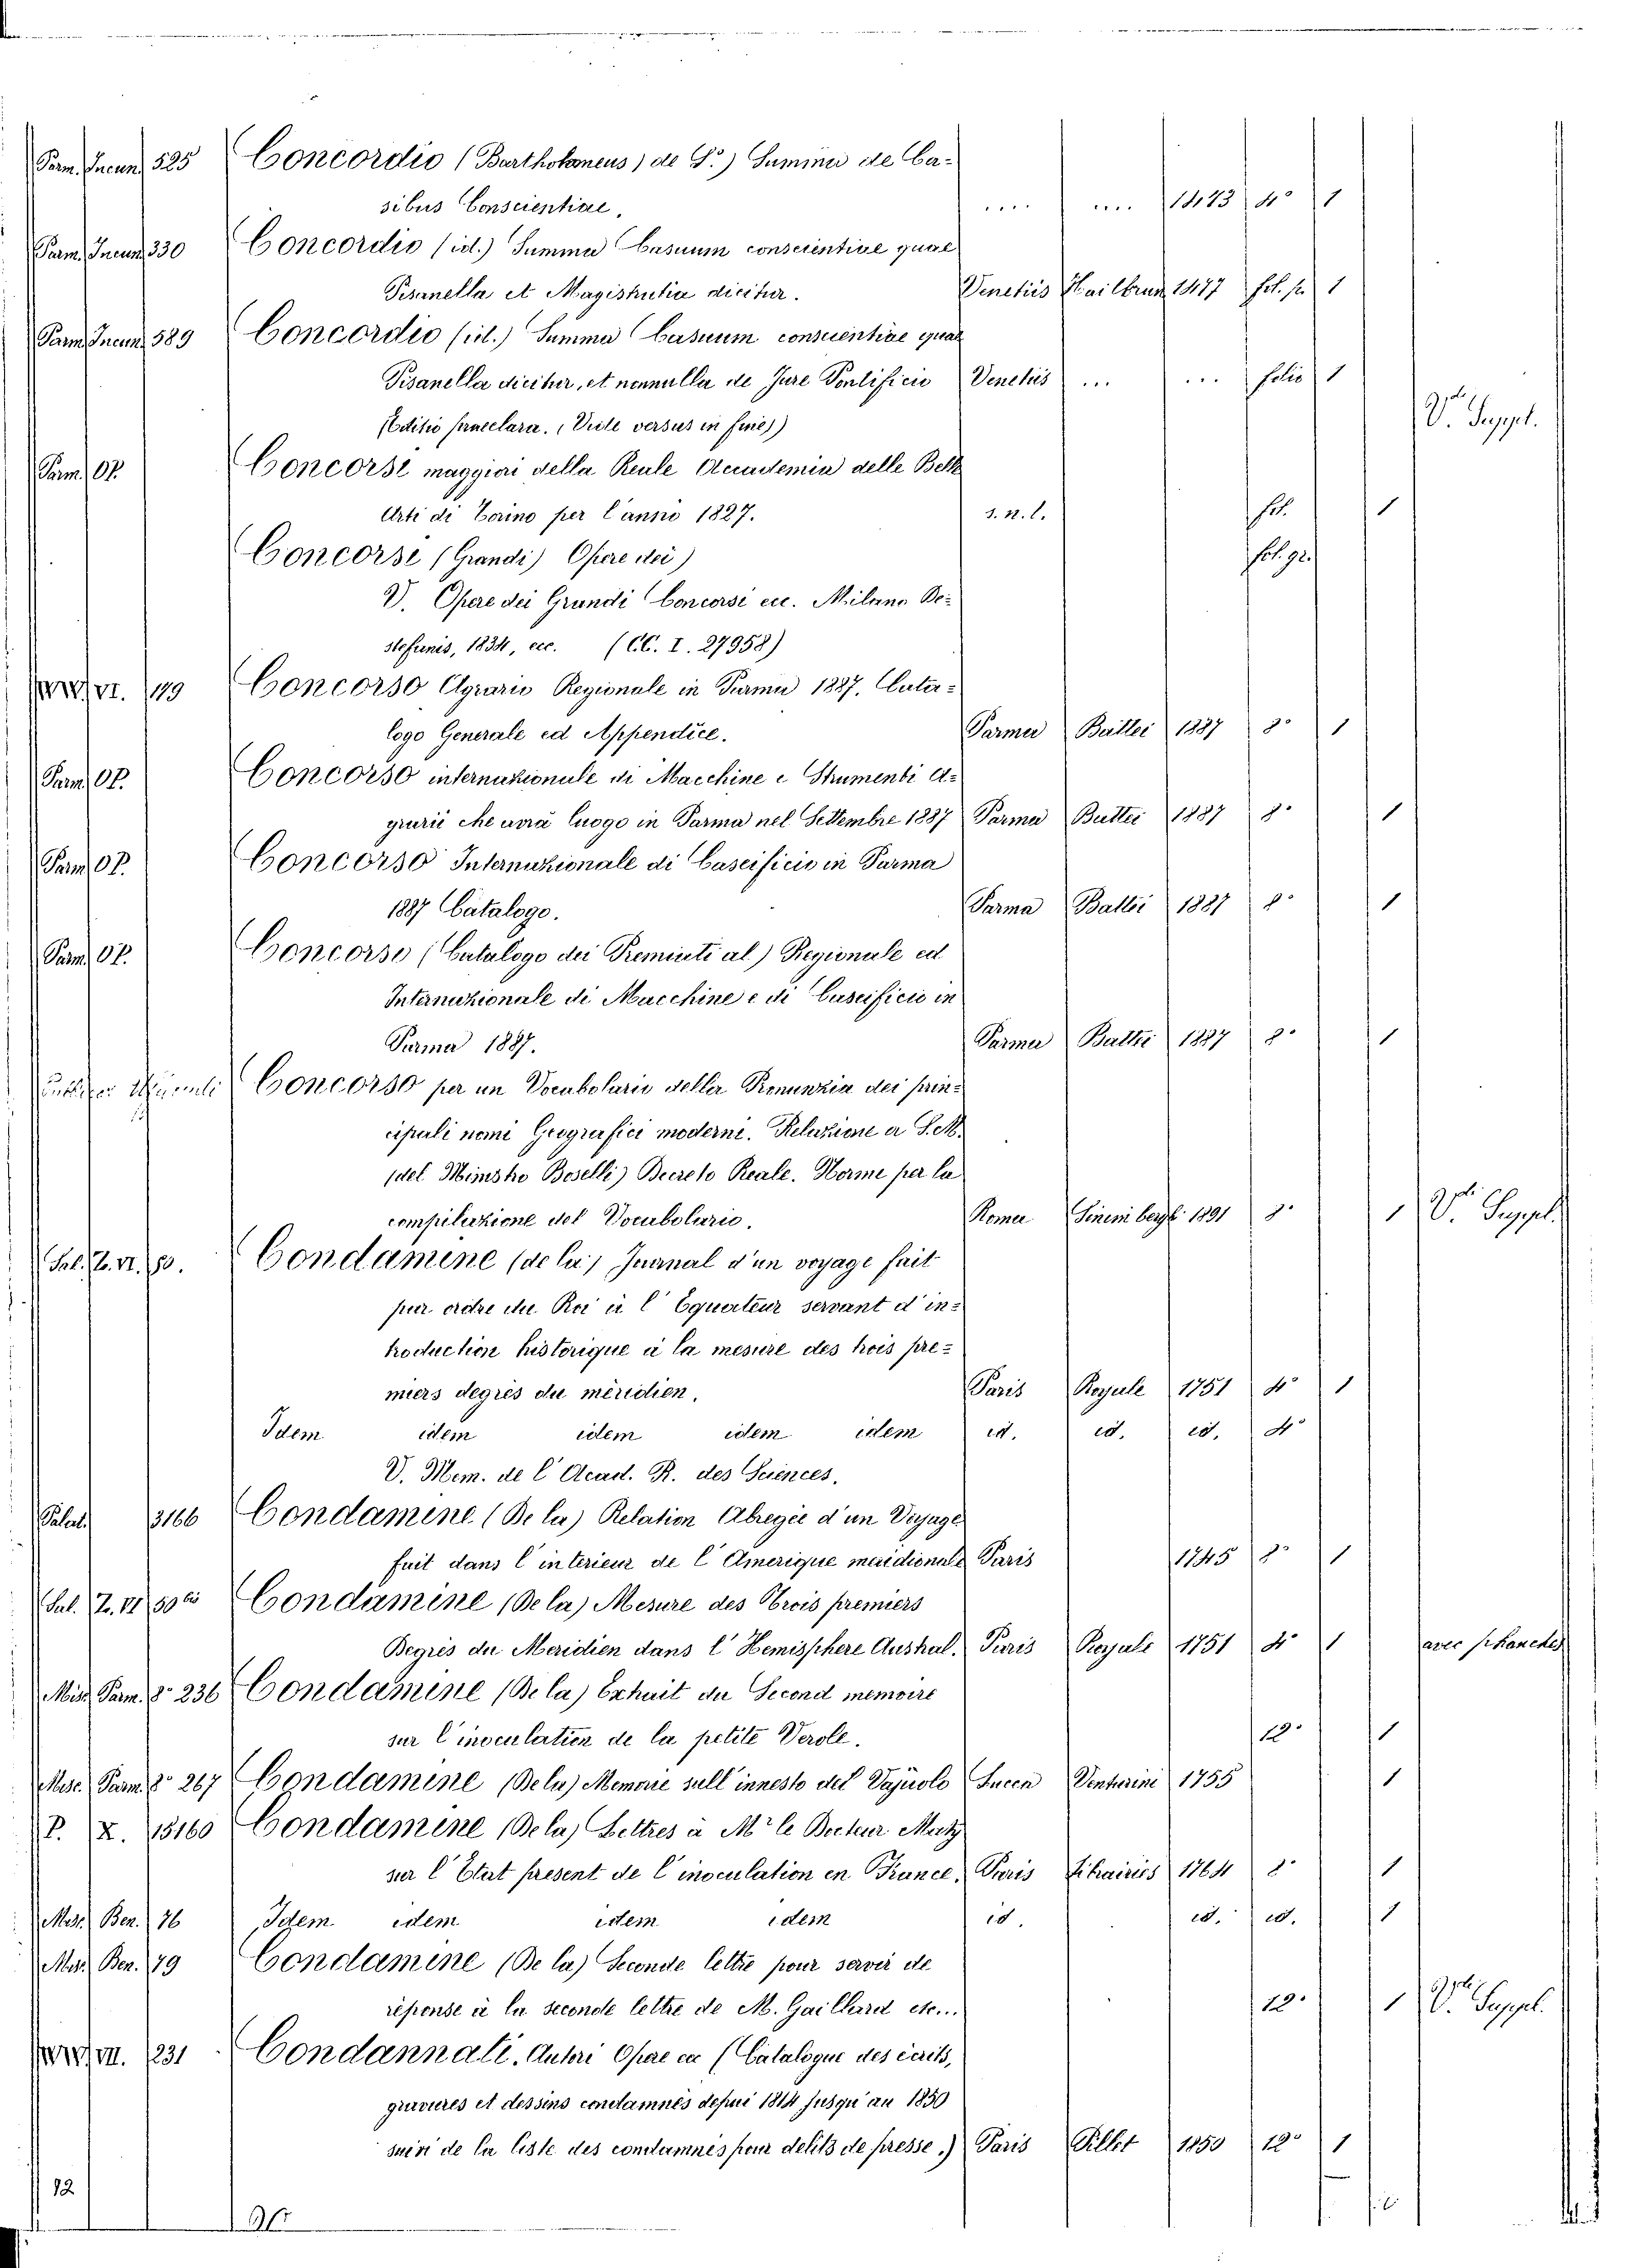 Parm. Incun. 525 Concordio (Bartholomeus) de S.º) Summa de Ca-
sibus Conscientiae, .... .... 1473 4º 1
Parm. Incun. 330 Concordio (id.) Summa Casuum conscientiae quae
Pisanella et Magistrutia dicitur. Venetiis Hailbrun 1477 fol. p. 1
Parm. Incun. 589 Concordio (id.) Summa Casuum conscientiae quae
Pisanella dicitur, et nonnulla de Jure Pontificio Venetiis ... ... folio 1
(Editio praeclara. (Vide versus in fine)) V. Suppl.
Parm. OP. Concorsi maggiori della Reale Accademia delle Belle
Arti di Torino per l'anno 1827. s. n. l. fol. 1
Concorsi (Grandi) Opere dei) fol. gr.
V. Opere dei Grandi Concorsi ecc. Milano De-
stefanis, 1834, ecc. (CC. I. 27958)
VI. 149 Concorso Agrario Regionale in Parma 1887. Cata-
logo Generale ed Appendice. Parma Battei 1887 8º 1
Parm. OP. Concorso internazionale di Macchine e Strumenti a-
grarii che avrà luogo in Parma nel Settembre 1887 Parma Battei 1887 8º 1
Parm. OP. Concorso Internazionale di Caseificio in Parma
1887 Catalogo. Parma Battei 1887 8º 1
Parm. OP. Concorso (Catalogo dei Premiati al) Regionale ed
Internazionale di Macchine e di Caseificio in
Parma 1887. Parma Battei 1887 8º 1
Concorso per un Vocabolario della Pronunzia dei prin-
cipali nomi Geografici moderni. Relazione a S. M.
(del Ministro Boselli) Decreto Reale. Norme per la
compilazione del Vocabolario. Roma Sinimberghi 1891 8º 1 V. Suppl.
Sal. Z. VI. 50. Condamine (de la) Journal d'un voyage fait
par ordre du Roi à l'Equateur servant d'in-
troduction historique à la mesure des trois pre-
miers degrés du méridien, Paris Royale 1751 4º 1
Idem idem idem idem idem id. id. id. 4º
V. Mem. de l'Acad. R. des Sciences,
Palat. 3166 Condamine (De la) Relation Abregée d'un Voyage
fait dans l'interieur de l'Amerique meridionale Paris 1745 8º 1
Sal. Z. VI 50 bis Condamine (De la) Mesure des Trois premiers
Degrés du Meridien dans l'Hemisphere Austral. Paris Royale 1751 4º 1 avec planches
Misc. Parm. 8º 236 Condamine (De la) Extrait du Second memoire
sur l'inoculation de la petite Verole. 12º 1
Misc. Parm. 8º 267 Condamine (De la) Memorie sull'innesto del Vajuolo Lucca Venturini 1755 1
P. X. 15160 Condamine (De la) Lettres à M.r le Docteur Maty
sur l'Etat present de l'inoculation en France, Paris Libraires 1764 8º 1
Misc. Ben. 76 Idem idem idem idem id. id. id. 1
Misc. Ben. 79 Condamine (De la) Seconde lettre pour servir de
réponse à la seconde lettre de M. Gaillard etc... 12º 1 V. Suppl.
VII. 231 Condannati. Autori Opere ecc (Catalogue des écrits,
gravures et dessins condamnés depui 1814 jusqu'au 1850
suivi de la liste des condamnés pour delits de presse.) Paris Pillet 1850 12º 1
12